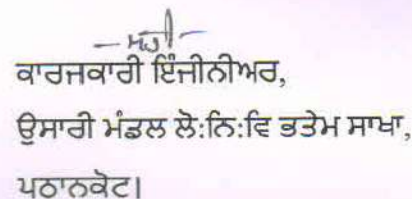 — ਸਹੀ —
ਕਾਰਜਕਾਰੀ ਇੰਜੀਨੀਅਰ,
ਉਸਾਰੀ ਮੰਡਲ ਲੋ:ਨਿ:ਵਿ ਭਤੇਮ ਸਾਖਾ,
ਪਠਾਨਕੋਟ।